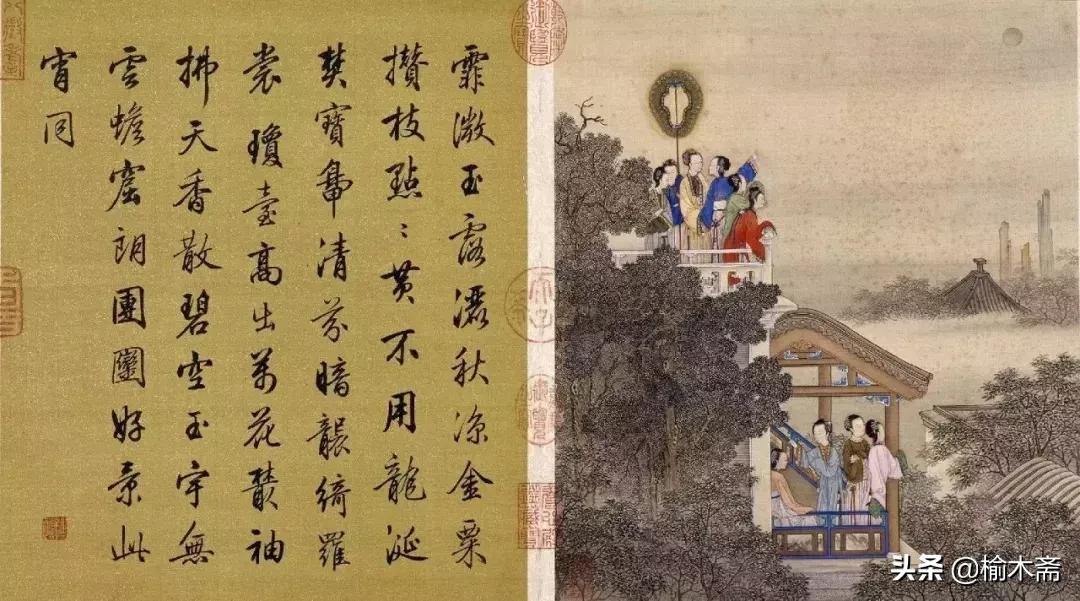 霏微玉露灑秋涼金粟
攢枝點〻黃不用龍涎
焚寶鼎清芬暗襲綺羅
裳 瓊臺高出萬花叢袖
拂天香散碧空玉宇無
雲蟾窟朗團圞好景此
宵同
头条 @榆木斋